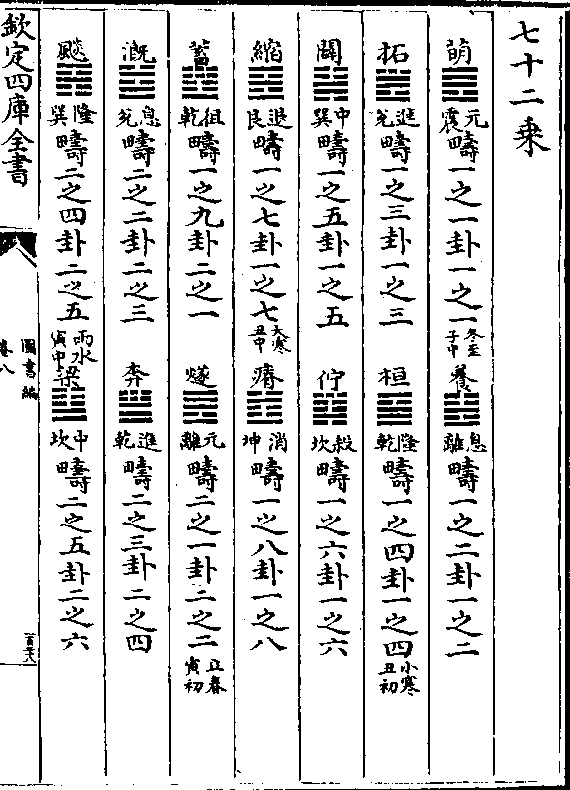 七十二乘
萌 元震 疇一之一卦一之一 冬至子中 養 息離 疇一之二卦一之二
拓 進兊 疇一之三卦一之三 桓 隆乾 疇一之四卦一之四 小寒丑初
闢 中巽 疇一之五卦一之五 佇 殺坎 疇一之六卦一之六
縮 退艮 疇一之七卦一之七 大寒丑中 瘠 消坤 疇一之八卦一之八
蓄 徂乾 疇一之九卦二之一 燧 元離 疇二之一卦二之二 立春寅初
漑 息兊 疇二之二卦二之三 奔 進乾 疇二之三卦二之四
颷 隆巽 疇二之四卦二之五 雨水寅中 梁 中坎 疇二之五卦二之六
欽定四庫全書
圖書編
卷八